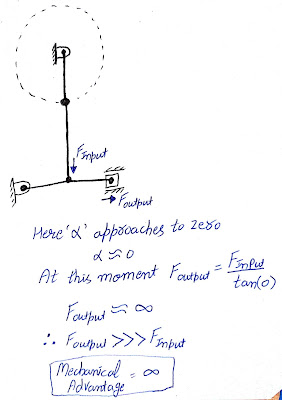 FInput
Foutput
Here 'α' approaches to zero
α ≈ 0
At this moment Foutput = FInput / tan(0)
Foutput ≈ ∞
∴ Foutput >>> FInput
Mechanical Advantage = ∞